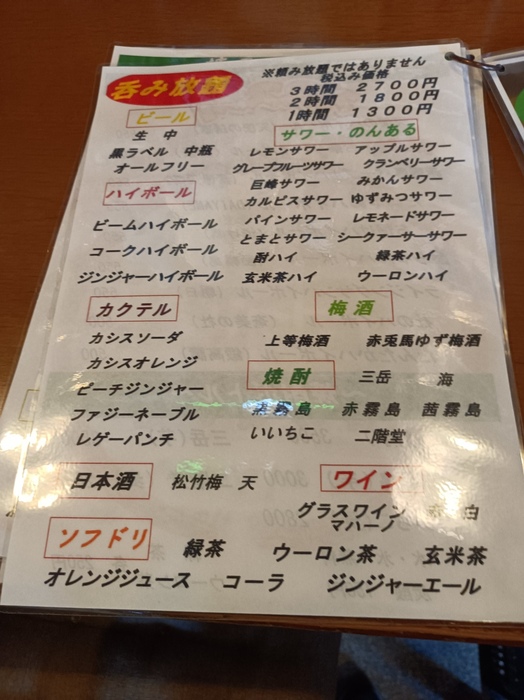 呑み放題
※頼み放題ではありません
税込み価格
3時間 2700円
2時間 1800円
1時間 1300円
ビール
生 中
黒ラベル 中瓶
オールフリー
サワー・のんある
レモンサワー アップルサワー
グレープフルーツサワー クランベリーサワー
巨峰サワー みかんサワー
カルピスサワー ゆずみつサワー
パインサワー レモネードサワー
とまとサワー シークァーサーサワー
酎ハイ 緑茶ハイ
玄米茶ハイ ウーロンハイ
ハイボール
ビームハイボール
コークハイボール
ジンジャーハイボール
カクテル
カシスソーダ
カシスオレンジ
ピーチジンジャー
ファジーネーブル
レゲーパンチ
梅酒
上等梅酒 赤兎馬ゆず梅酒
焼酎 三岳 海
黒霧島 赤霧島 茜霧島
いいちこ 二階堂
日本酒 松竹梅 天
ワイン
グラスワイン 赤 白
マハーノ
ソフドリ
緑茶 ウーロン茶 玄米茶
オレンジジュース コーラ ジンジャーエール